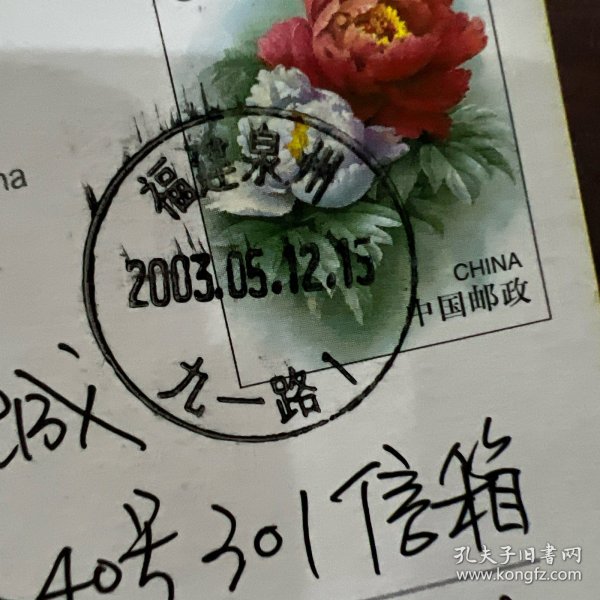 na
福建泉州
2003.05.12.15
九一路1
CHINA
中国邮政
40号301信箱
孔夫子旧书网
www.kongfz.com